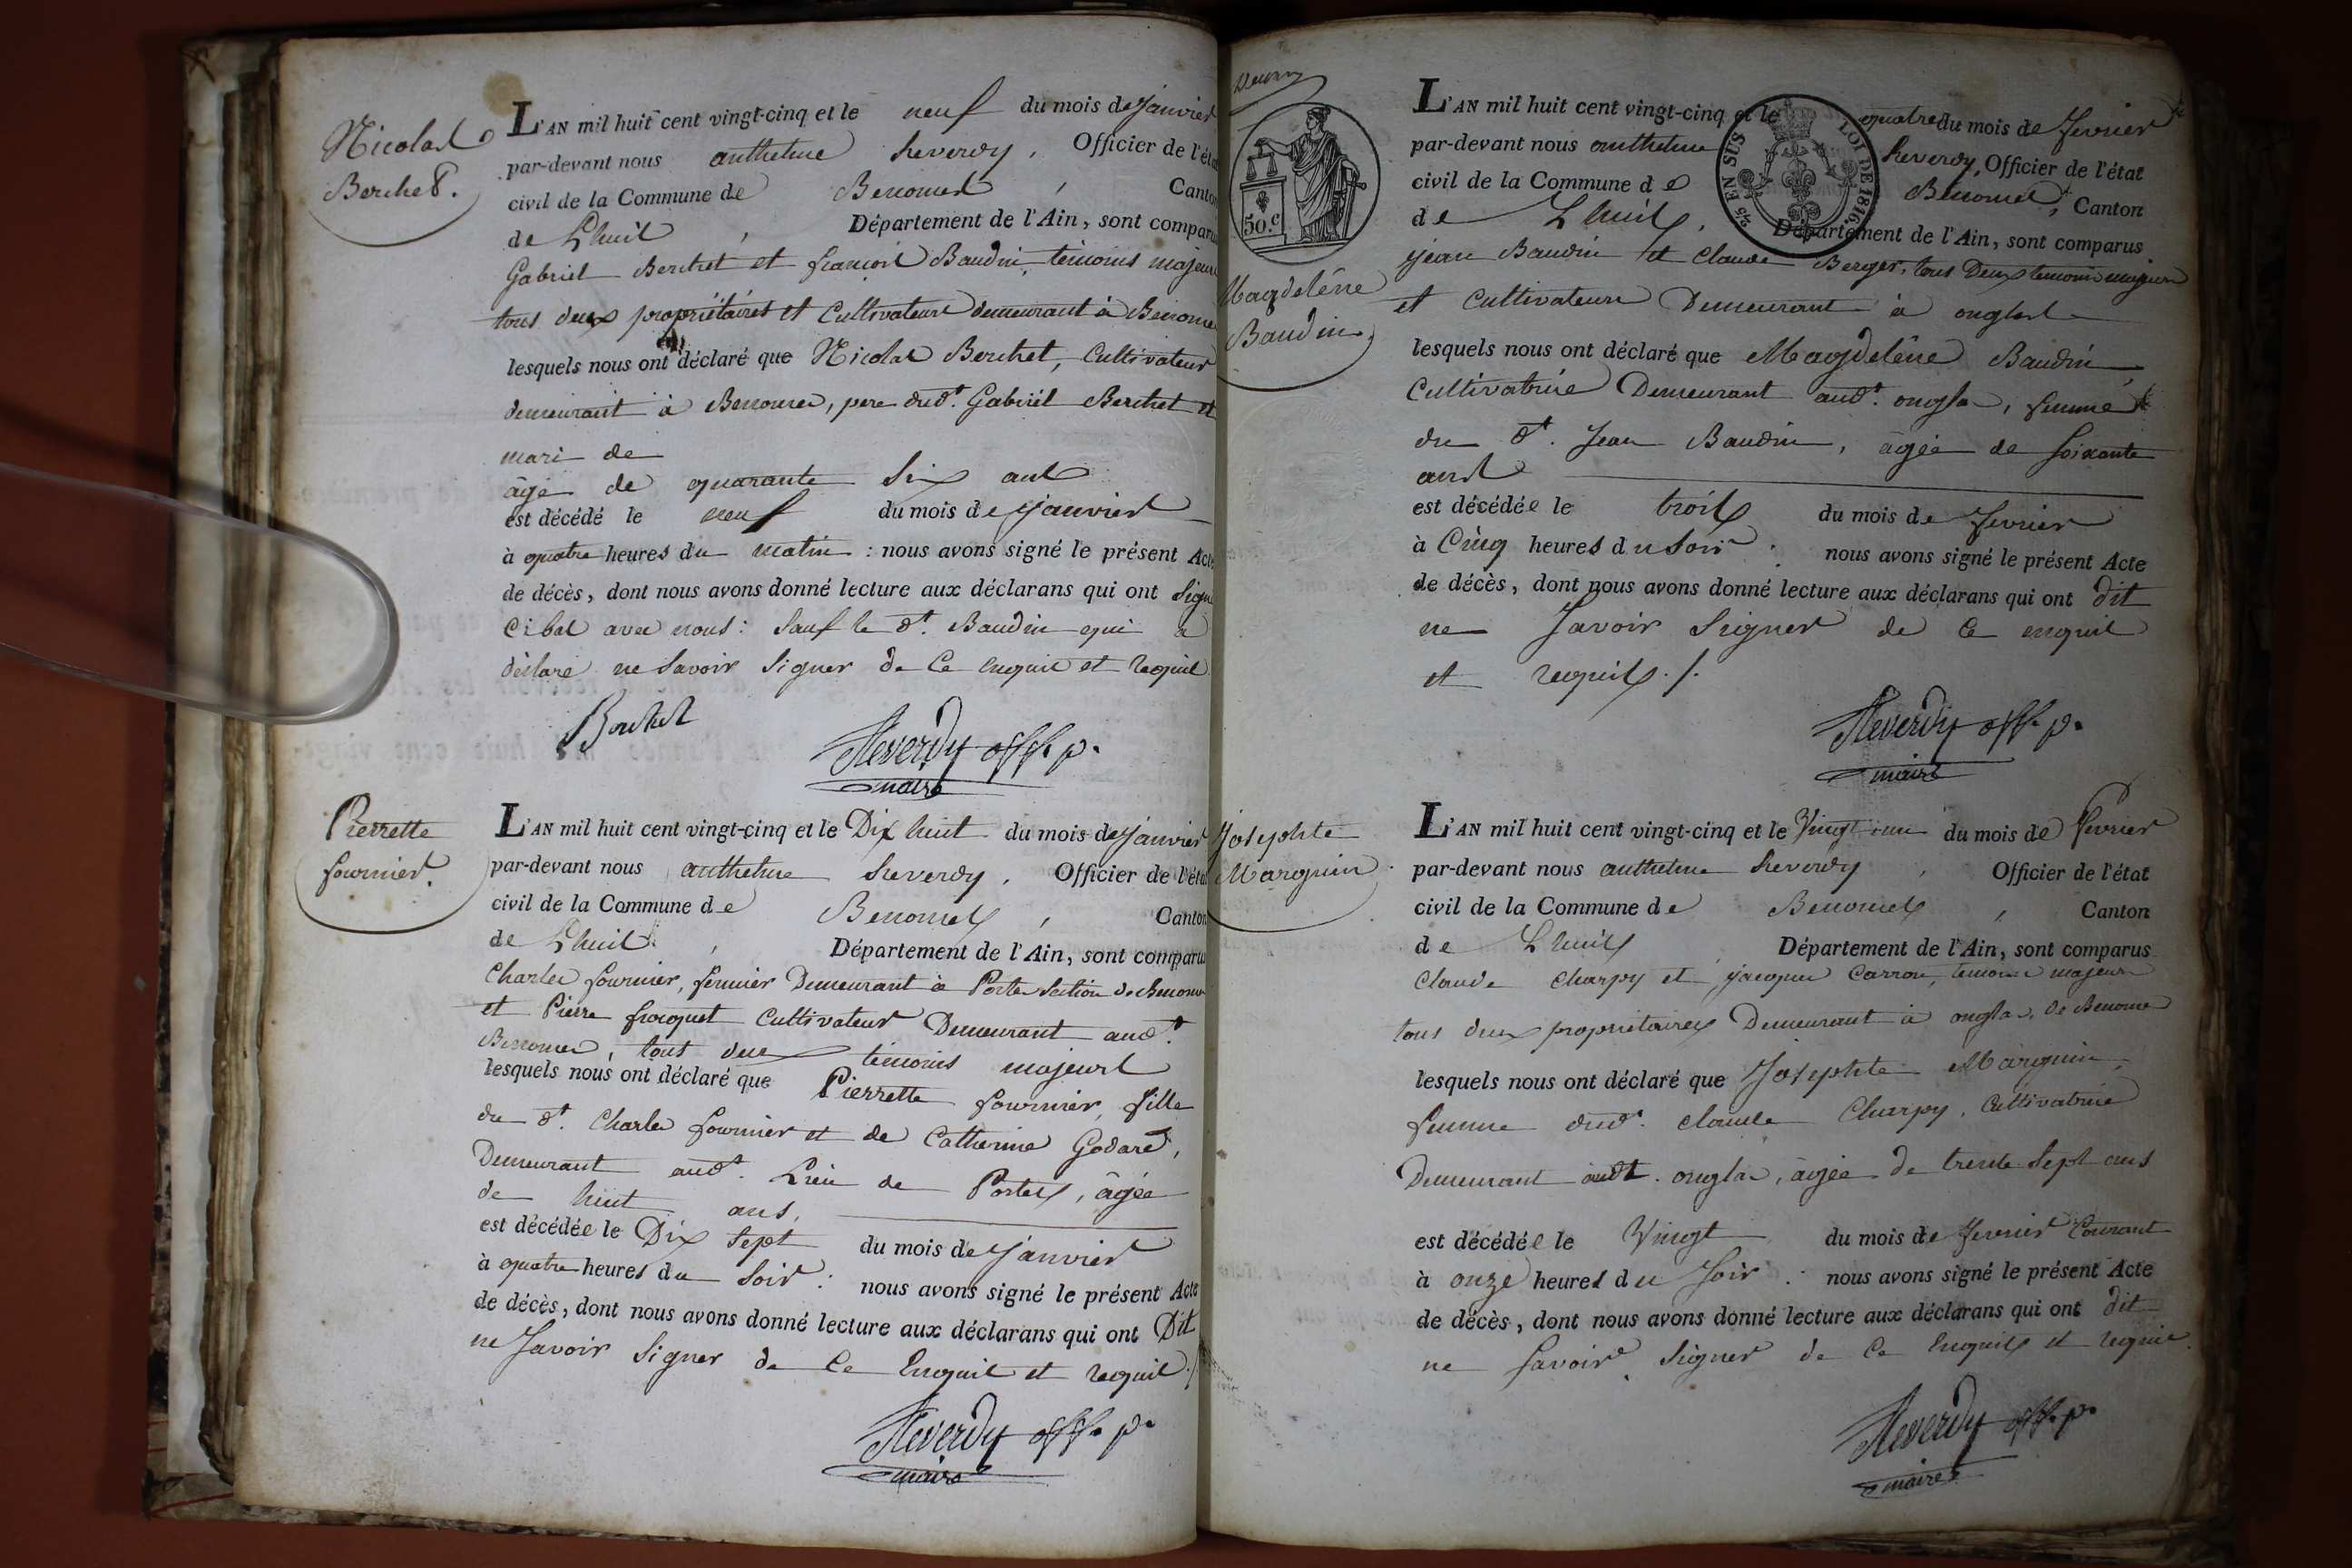 Nicolas
Berchet.
L'AN mil huit cent vingt-cinq et le neuf du mois de janvier
par-devant nous anthelme Reverdy, Officier de l'état
civil de la Commune de Benonces, Canton
de Lhuis, Département de l'Ain, sont comparus
Gabriel Berchet et françois Baudin, témoins majeurs
tous deux propriétaires et Cultivateurs demeurant à Benonces
lesquels nous ont déclaré que Nicolas Berchet, Cultivateur
demeurant à Benonces, pere dud.t Gabriel Berchet et
mari de
âgé de quarante Six ans
est décédé le neuf du mois de janvier
à quatre heures du matin : nous avons signé le présent Acte
de décès, dont nous avons donné lecture aux déclarans qui ont Signé
avec nous : Sauf le d.t Baudin qui a
déclaré ne Savoir Signer de Ce Enquis et requis
Berchet
Reverdy off. p.
maire
Pierrette
fournier.
L'AN mil huit cent vingt-cinq et le Dix huit du mois de janvier
par-devant nous anthelme Reverdy, Officier de l'état
civil de la Commune de Benonces, Canton
de Lhuis, Département de l'Ain, sont comparus
Charles fournier, fermier Demeurant à Portes Section de Benonces
et Pierre Cultivateur Demeurant aud.t
Benonces, tous deux témoins majeurs
lesquels nous ont déclaré que Pierrette fournier, fille
du d.t Charles fournier et de Catherine Godard,
Demeurant aud.t Lieu de Portes, âgée
de huit ans,
est décédée le Dix Sept du mois de Janvier
à quatre heures du Soir : nous avons signé le présent Acte
de décès, dont nous avons donné lecture aux déclarans qui ont Dit
ne Savoir Signer de Ce Enquis et requis ./.
Reverdy off. p.
maire
50.c
25 EN SUS
LOI DE 1816.
Magdeléne
Baudin.
L'AN mil huit cent vingt-cinq et le quatre du mois de fevrier
par-devant nous anthelme Reverdy, Officier de l'état
civil de la Commune de Benonces, Canton
de Lhuis, Département de l'Ain, sont comparus
jean Baudin et Claude Berger, tous Deux temoins majeurs
et Cultivateurs Demeurant à onglas
lesquels nous ont déclaré que Magdeléne Baudin
Cultivatrice Demeurant aud.t onglas, femme
du d.t Jean Baudin, âgée de Soixante
ans
est décédée le trois du mois de fevrier
à Cinq heures du Soir : nous avons signé le présent Acte
de décès, dont nous avons donné lecture aux déclarans qui ont dit
ne Savoir Signer de Ce enquis
et requis ./.
Reverdy off. p.
maire
Josephte
Marguin
L'AN mil huit cent vingt-cinq et le Vingt un du mois de fevrier
par-devant nous anthelme Reverdy, Officier de l'état
civil de la Commune de Benonces, Canton
de Lhuis, Département de l'Ain, sont comparus
Claude Charpy et jacques Carron, temoins majeurs
tous deux propriétaires Demeurant à onglas, de Benonces
lesquels nous ont déclaré que Josephte Marguin,
femme dud.t Claude Charpy, Cultivatrice
Demeurant audt. onglas, âgée de trente Sept ans
est décédée le Vingt du mois de fevrier Courant
à onze heures du Soir : nous avons signé le présent Acte
de décès, dont nous avons donné lecture aux déclarans qui ont dit
ne Savoir Signer de Ce Enquis et requis.
Reverdy off. p.
maire